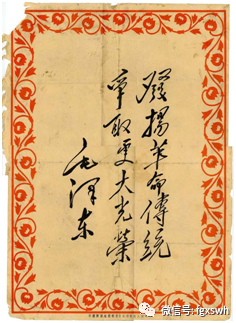 發揚革命傳統
爭取更大光榮
毛澤东
微信号: fgxswh